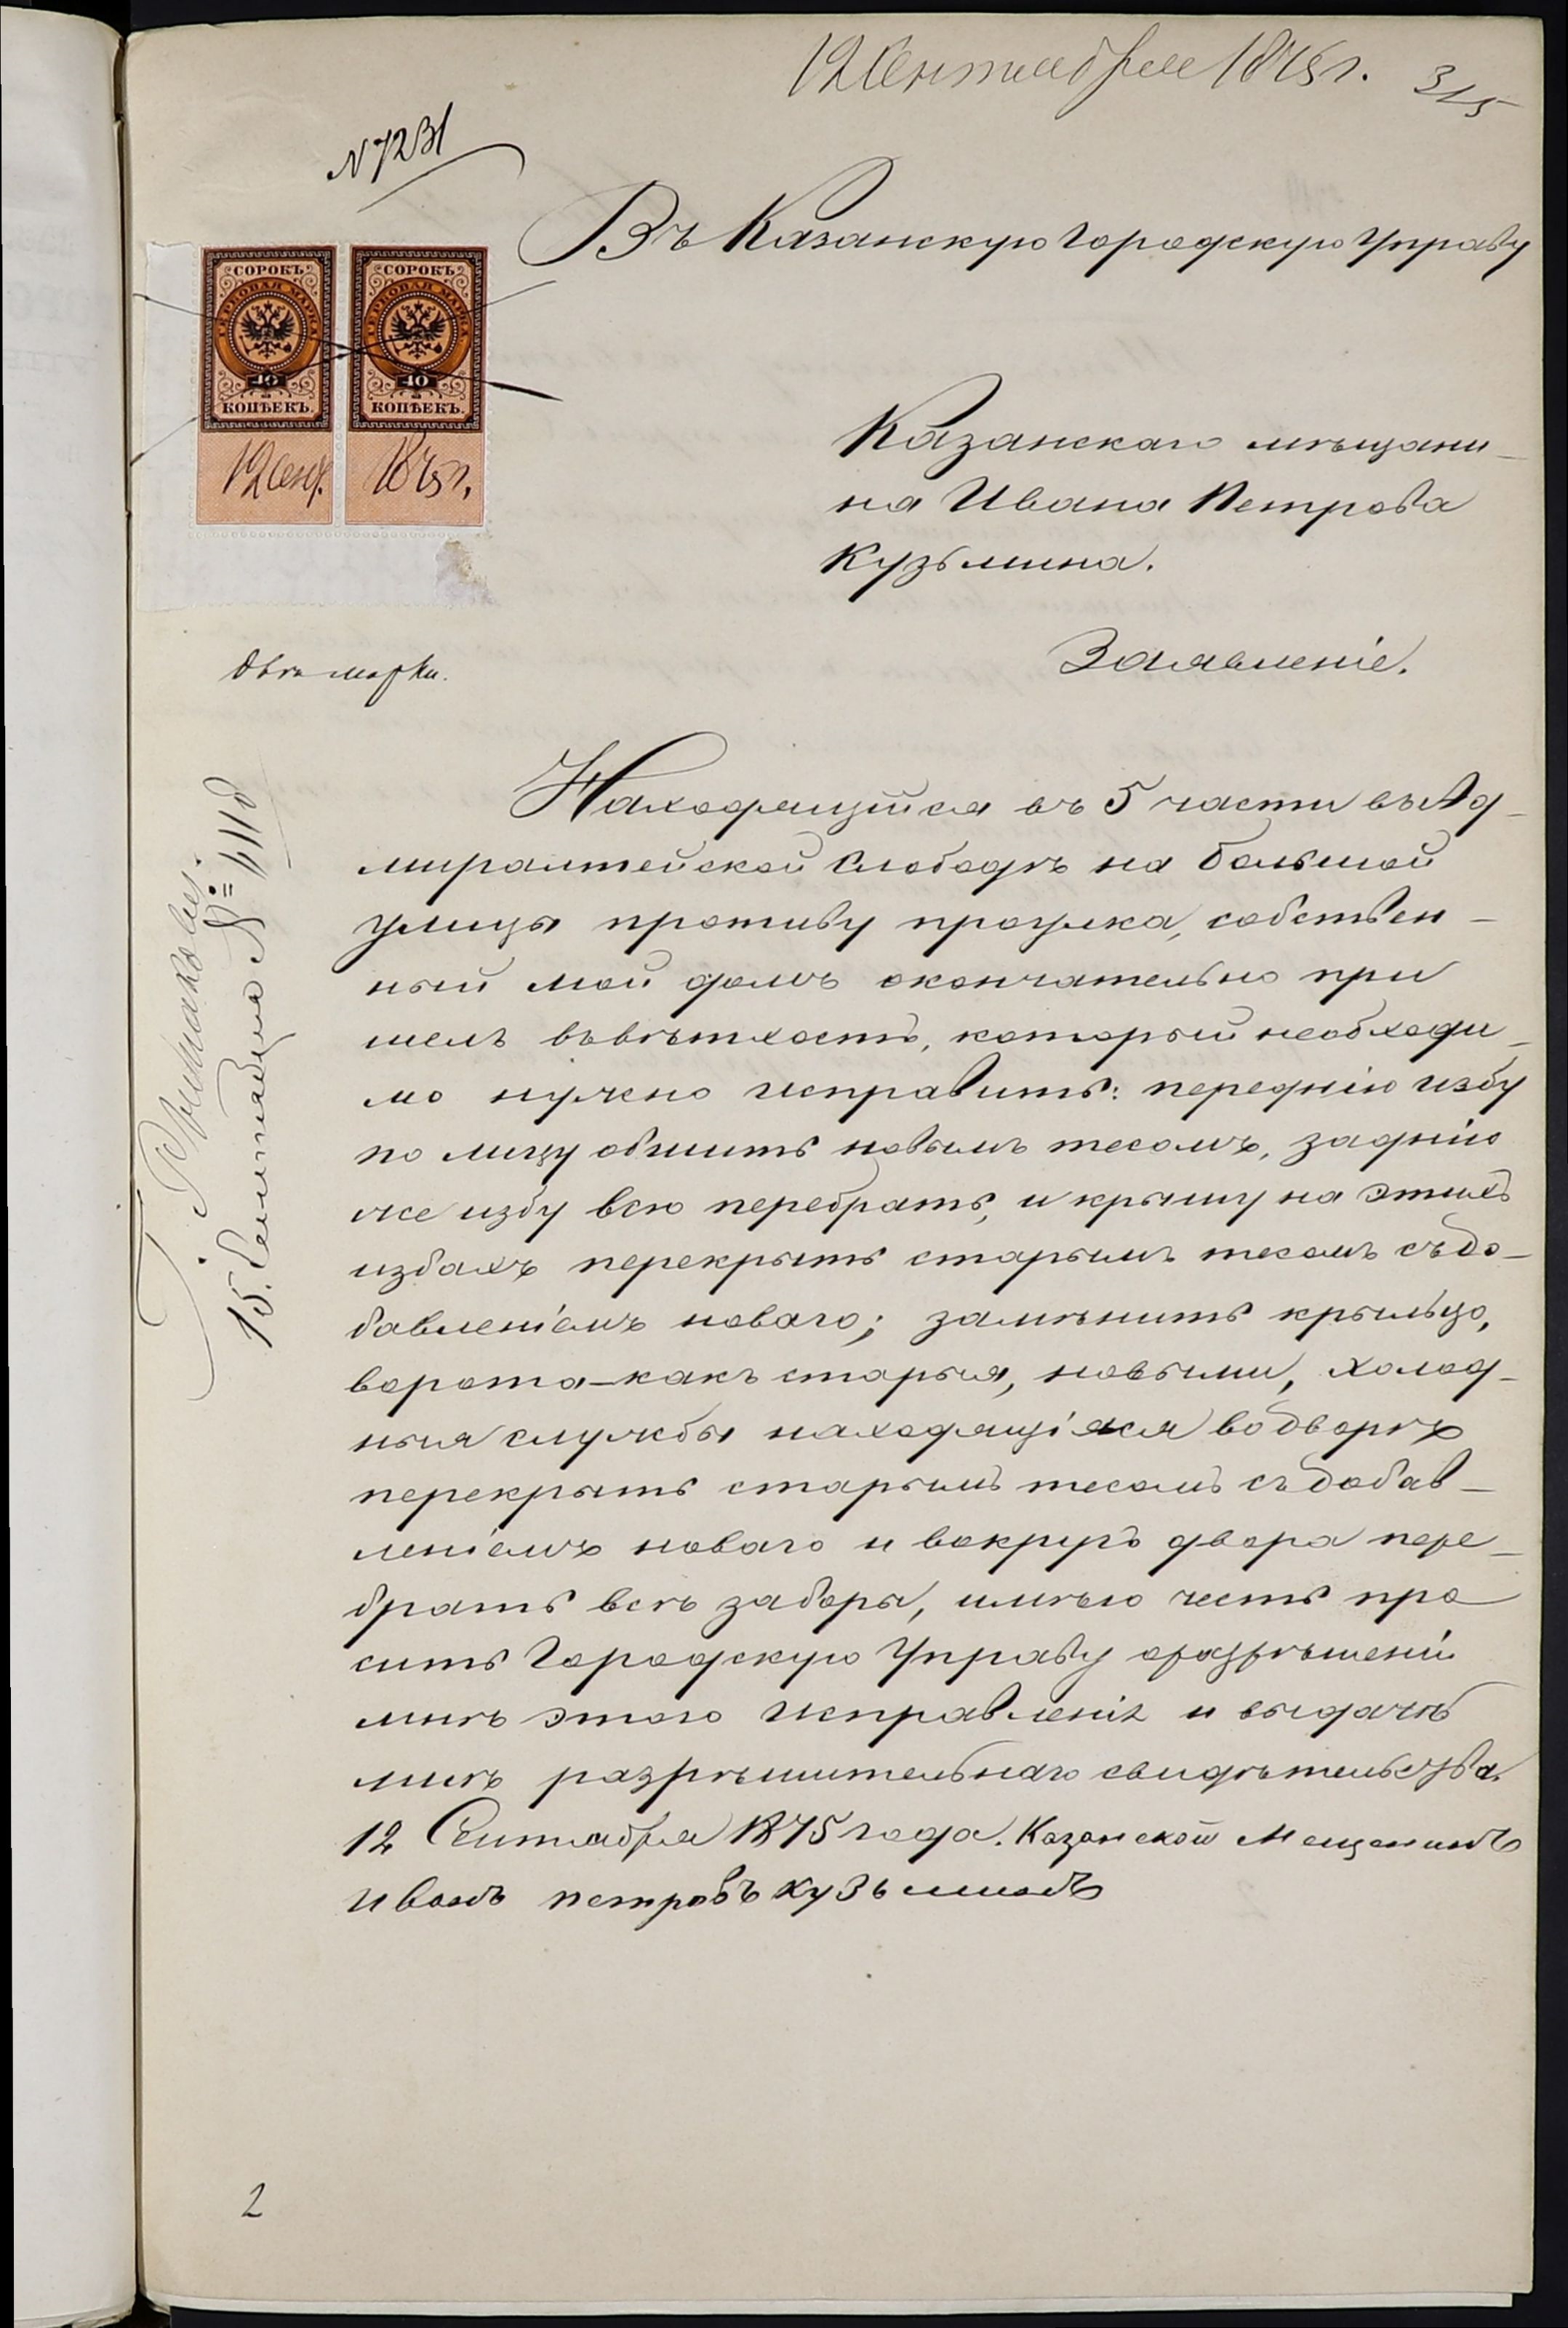 12 Сентября 1875 г. 315
N 7231
Въ Казанскую Городскую Управу
СОРОКЪ СОРОКЪ
ГЕРБОВАЯ МАРКА ГЕРБОВАЯ МАРКА
40 40
КОПѢЕКЪ. КОПѢЕКЪ.
12 Сент. 1875 г.
Казанскаго мѣщани-
на Ивана Петрова
Кузьмина.
Двѣ марки.
Заявленіе.
Находящійся въ 5 части въ Ад-
миралтейской Слободѣ на большой
улицы противу проулка, собствен-
ный мой домъ окончательно при
шелъ въ вѣтхость, который необходи-
мо нужно исправить: переднію избу
по лицу обшить новымъ тесомъ, заднію
же избу всю перебрать, и крышу на этихъ
избахъ перекрыть старымъ тесомъ съ до-
бавленіемъ новаго; замѣнить крыльцо,
ворота-какъ старыя, новыми, холод-
ныя службы находящіяся во дворѣ
перекрыть старымъ тесомъ съ добав-
леніемъ новаго и вокругъ двора пере-
брать всѣ заборы, имѣю честь про
сить Городскую Управу о разрѣшеніи
мнѣ этого исправленія и выдачѣ
мнѣ разрѣшительнаго свидѣтельства.
12 Сентября 1875 года. Казанской Мещенинъ
Иванъ петровъ Кузьминъ
15. Сентября № 4118
2